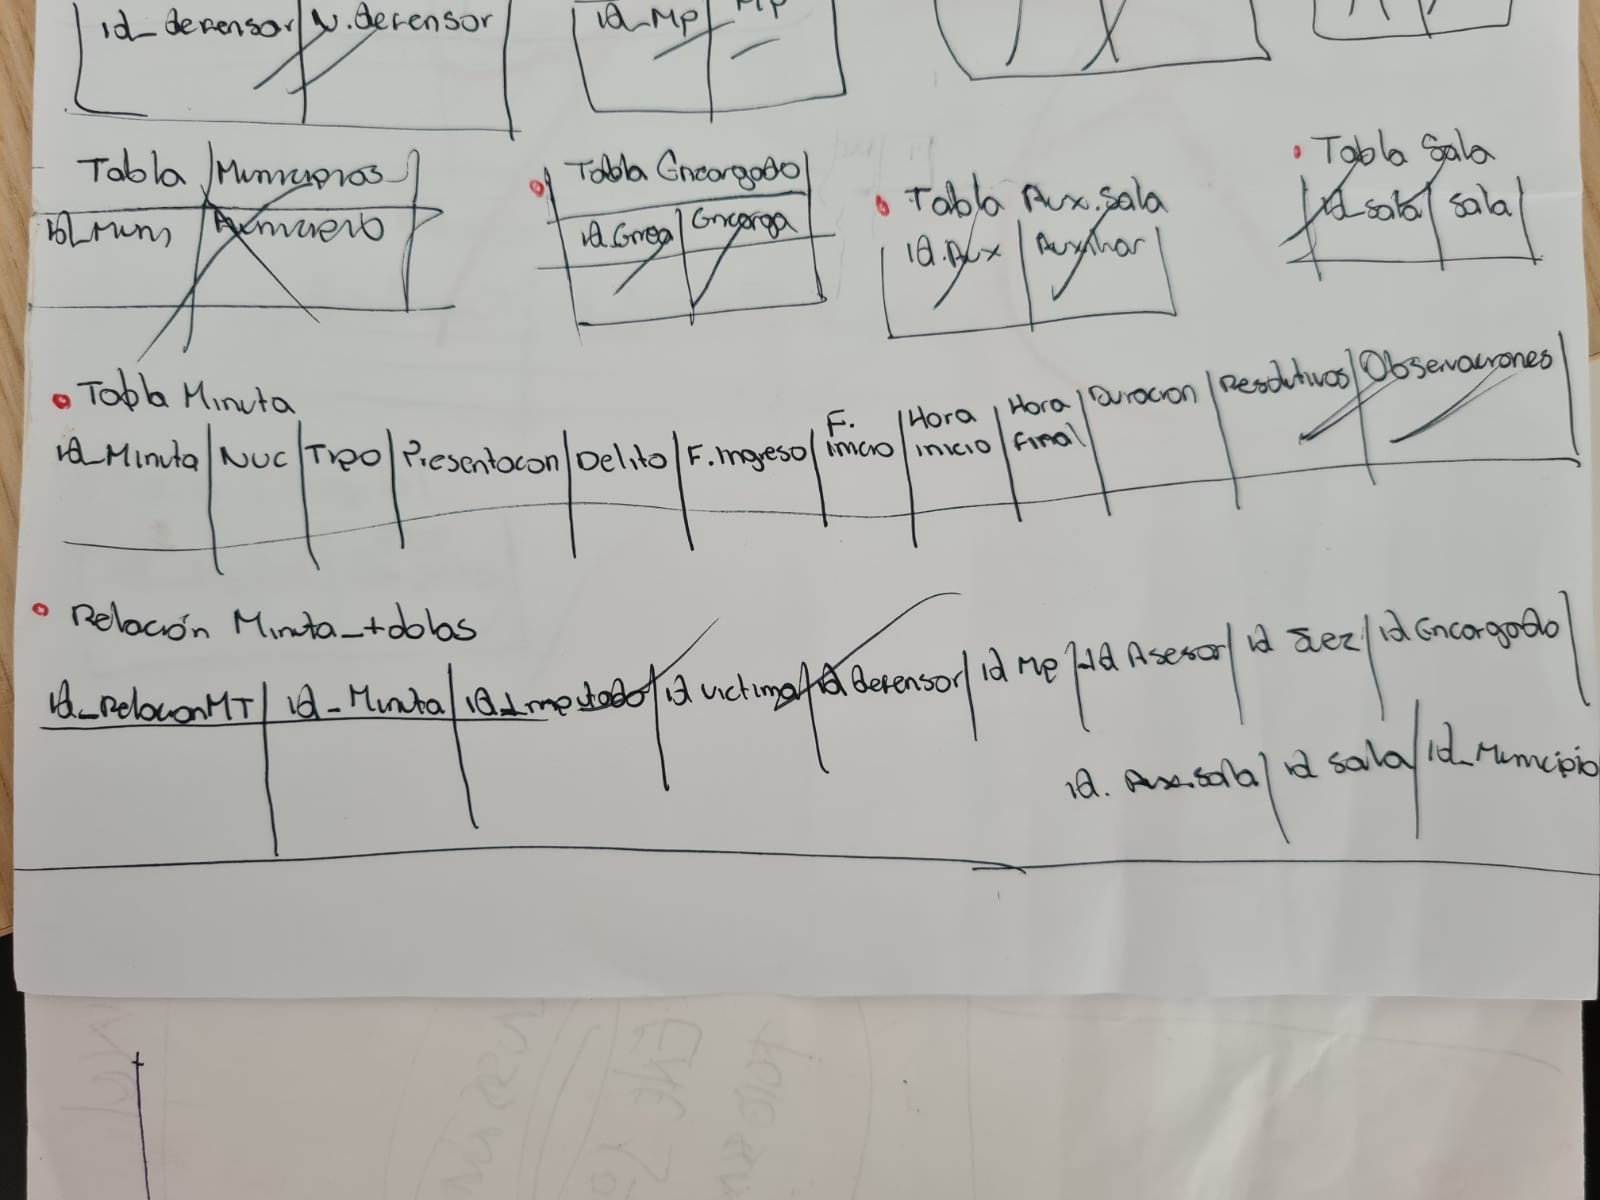 id_defensor N.defensor
id_Mp Mp
Tabla Municipios
id_Muni
Tabla Encargado
id.Enca Encarga
Tabla Aux.Sala
id.Aux Auxiliar
Tabla Sala
id_sala sala
Tabla Minuta
id_Minuta NUC Tipo Presentacon Delito F.Ingreso F. inicio Hora inicio Hora Final Duracion Resolutivos Observaciones
Relación Minuta_tablas
id_RelacionMT id_Minuta id_Imputado id victima id defensor id Mp id Asesor id Juez id Encargado
id. Aux.sala id sala id_Municipio